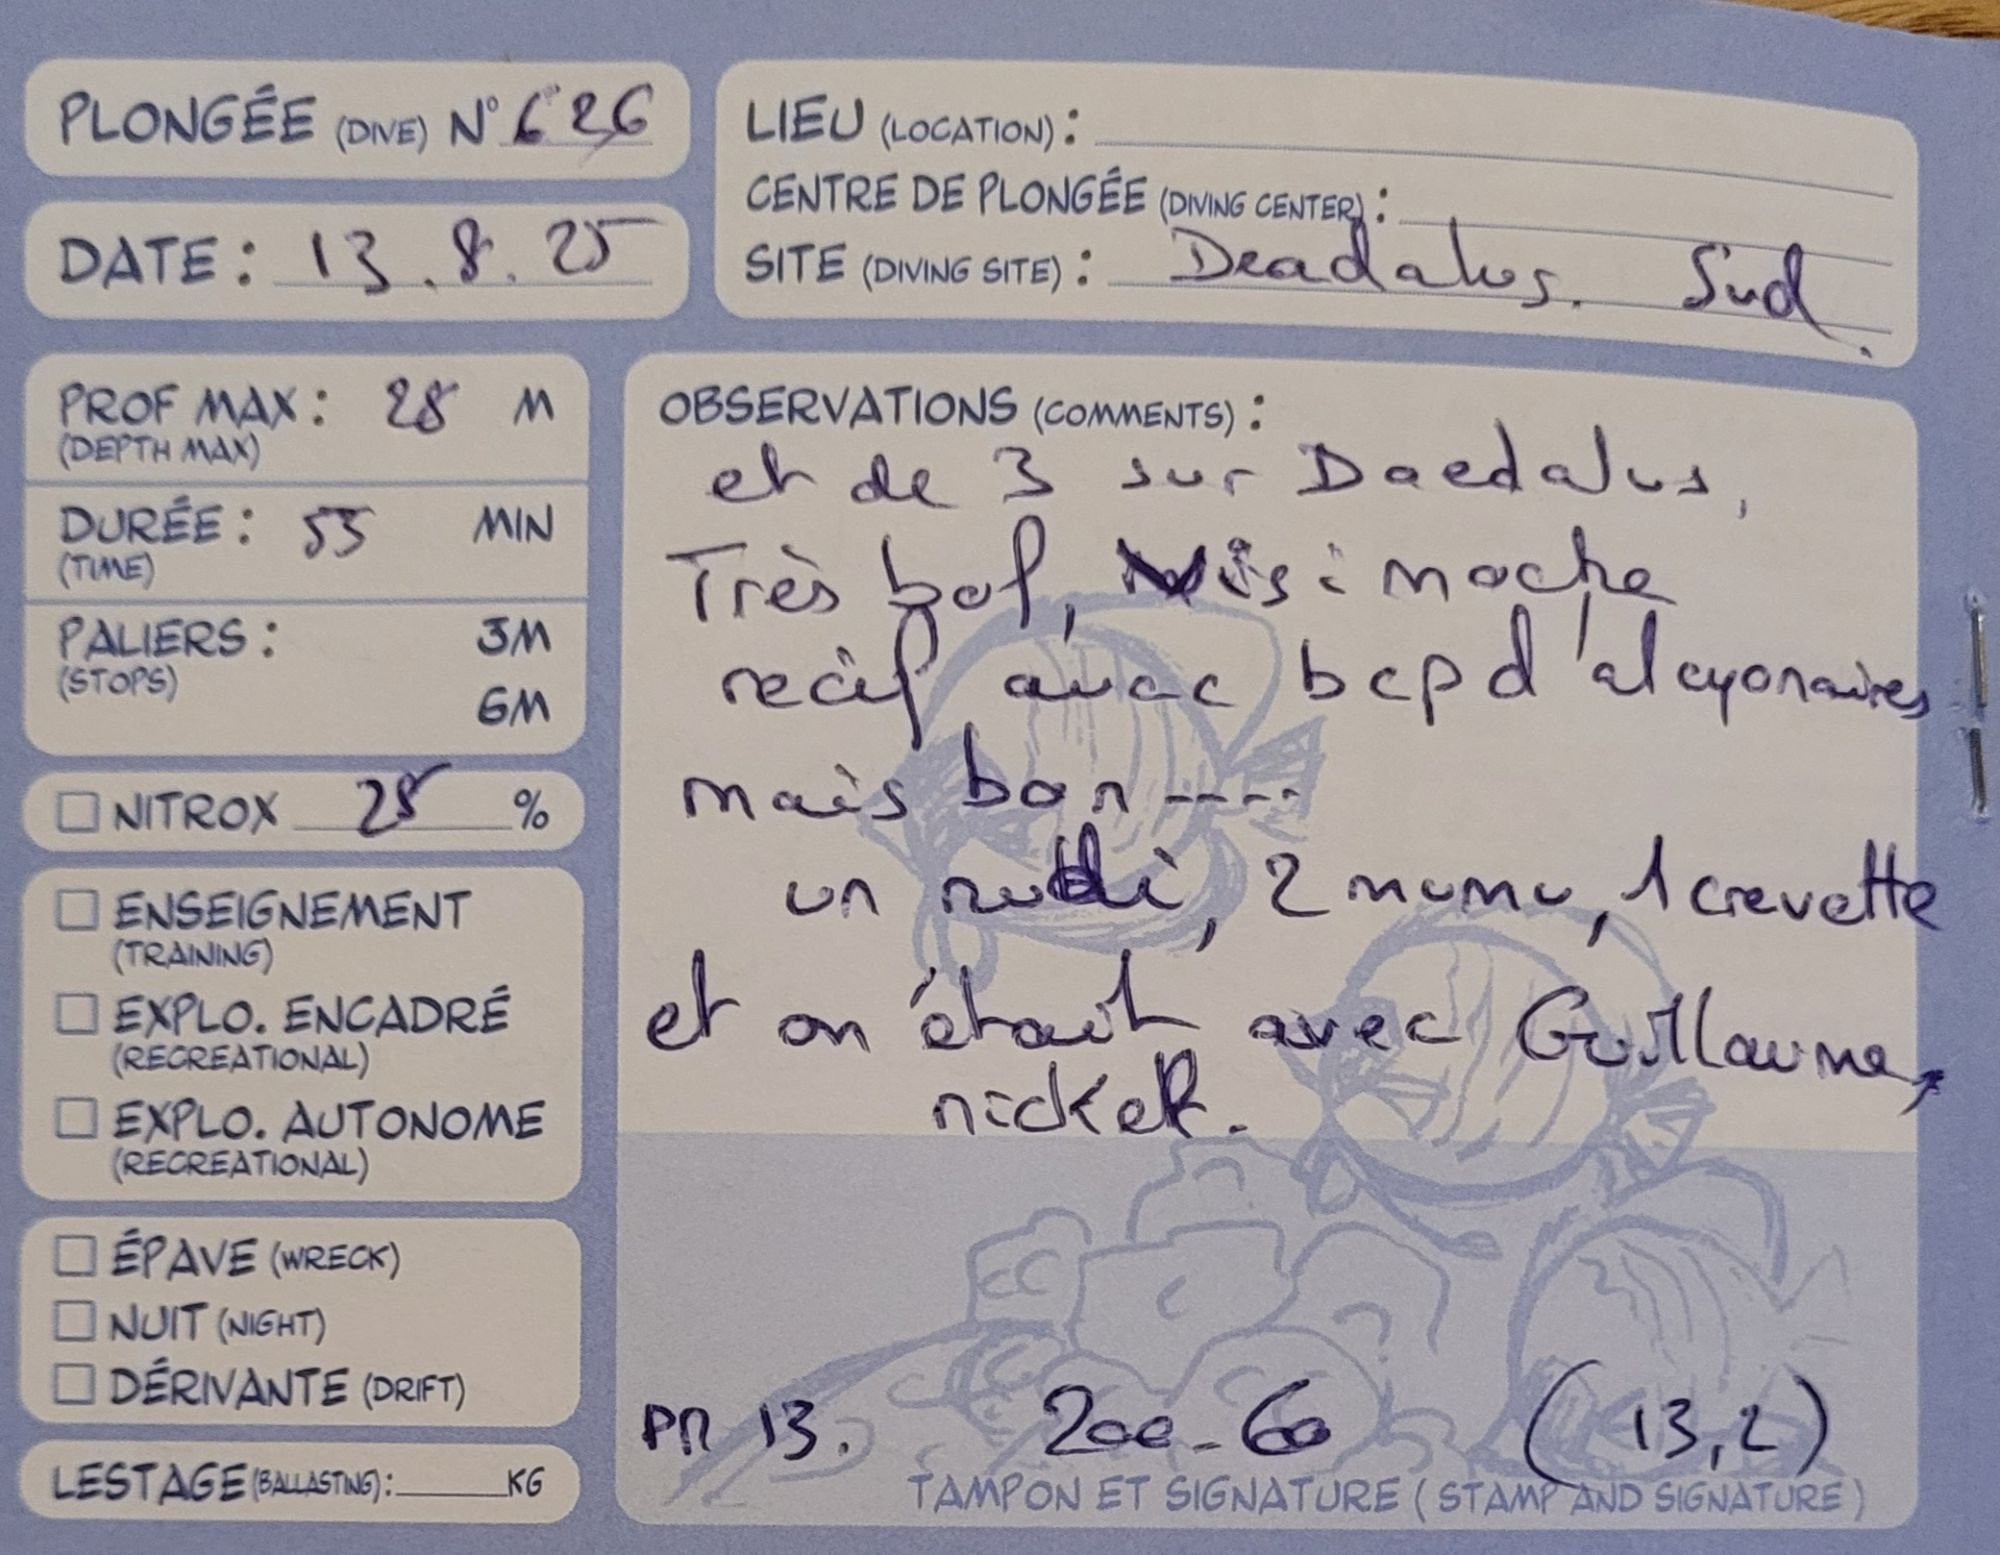 PLONGÉE (DIVE) N° 626
DATE : 13.8.25
LIEU (LOCATION) :
CENTRE DE PLONGÉE (DIVING CENTER) :
SITE (DIVING SITE) : Deadalus. Sud.
PROF MAX : 28 M
(DEPTH MAX)
DURÉE : 55 MIN
(TIME)
PALIERS : 3M
(STOPS)
6M
NITROX 28 %
ENSEIGNEMENT
(TRAINING)
EXPLO. ENCADRÉ
(RECREATIONAL)
EXPLO. AUTONOME
(RECREATIONAL)
ÉPAVE (WRECK)
NUIT (NIGHT)
DÉRIVANTE (DRIFT)
LESTAGE (BALLASTING) : KG
OBSERVATIONS (COMMENTS) :
et de 3 sur Daedalus,
Très bof, Visi moche
recif avec bcp d'alcyonaires
mais bon ----
un nudi, 2 mumu, 1 crevette
et on était avec Guillaume,
nickel.
PM 13. 200-60 (13,2)
TAMPON ET SIGNATURE (STAMP AND SIGNATURE)